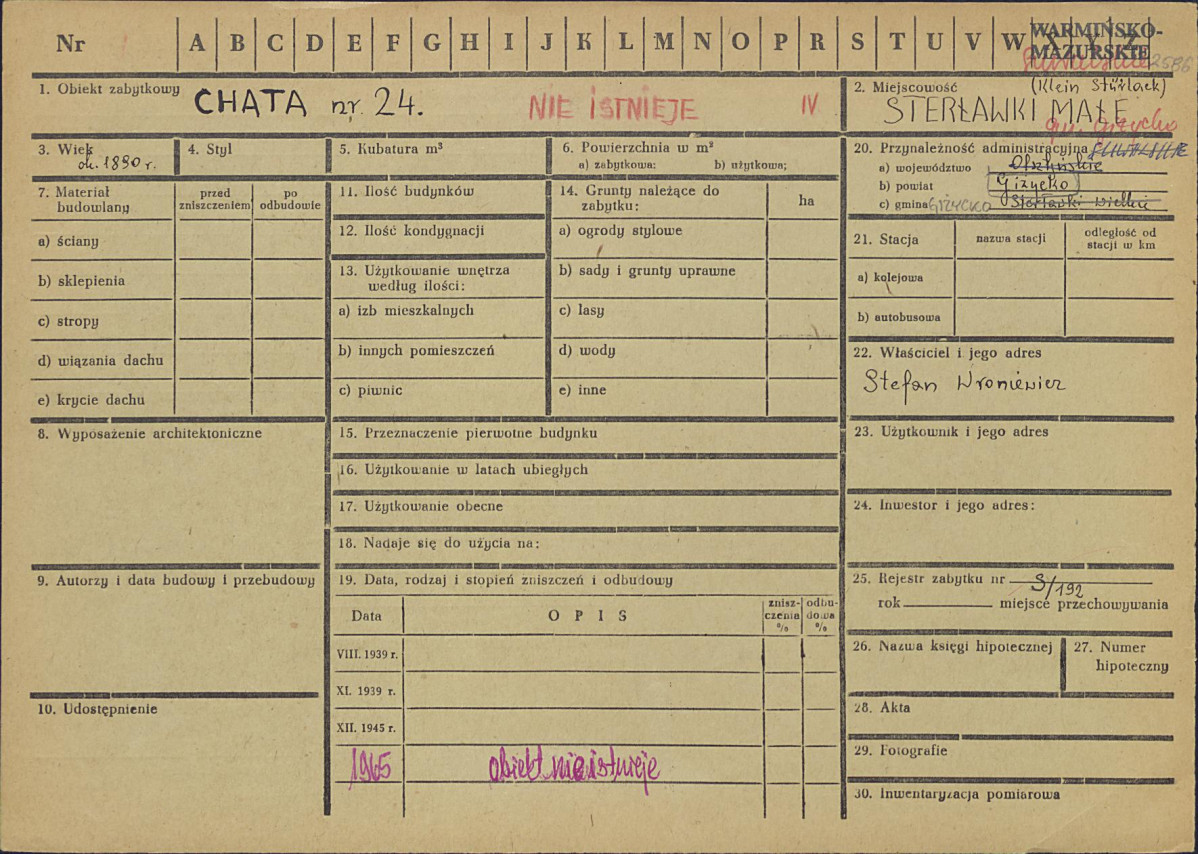 Nr A B C D E F G H I J K L M N O P R S T U V W X Y Z
WARMIŃSKO-
MAZURSKIE
2586
1. Obiekt zabytkowy
CHATA nr. 24.
NIE ISTNIEJE
IV
2. Miejscowość
(Klein Stürlack)
STERŁAWKI MAŁE
gm. Giżycko
3. Wiek
ok. 1890 r.
4. Styl
5. Kubatura m³
6. Powierzchnia w m²
a) zabytkowa: b) użytkowa;
20. Przynależność administracyjna
a) województwo Olsztyńskie
b) powiat Giżycko
c) gmina GIŻYCKO Sterławki Wielkie
7. Materiał
budowlany
przed
zniszczeniem
po
odbudowie
a) ściany
b) sklepienia
c) stropy
d) wiązania dachu
e) krycie dachu
11. Ilość budynków
12. Ilość kondygnacji
13. Użytkowanie wnętrza
według ilości:
a) izb mieszkalnych
b) innych pomieszczeń
c) piwnic
14. Grunty należące do
zabytku:
ha
a) ogrody stylowe
b) sady i grunty uprawne
c) lasy
d) wody
e) inne
21. Stacja
nazwa stacji
odległość od
stacji w km
a) kolejowa
b) autobusowa
22. Właściciel i jego adres
Stefan Wroniewicz
8. Wyposażenie architektoniczne
15. Przeznaczenie pierwotne budynku
16. Użytkowanie w latach ubiegłych
17. Użytkowanie obecne
18. Nadaje się do użycia na:
23. Użytkownik i jego adres
24. Inwestor i jego adres:
9. Autorzy i data budowy i przebudowy
19. Data, rodzaj i stopień zniszczeń i odbudowy
Data
OPIS
znisz-
czenia
%
odbu-
dowa
%
VIII. 1939 r.
XI. 1939 r.
XII. 1945 r.
1965 obiekt nie istnieje
10. Udostępnienie
25. Rejestr zabytku nr S/192
rok miejsce przechowywania
26. Nazwa księgi hipotecznej
27. Numer
hipoteczny
28. Akta
29. Fotografie
30. Inwentaryzacja pomiarowa